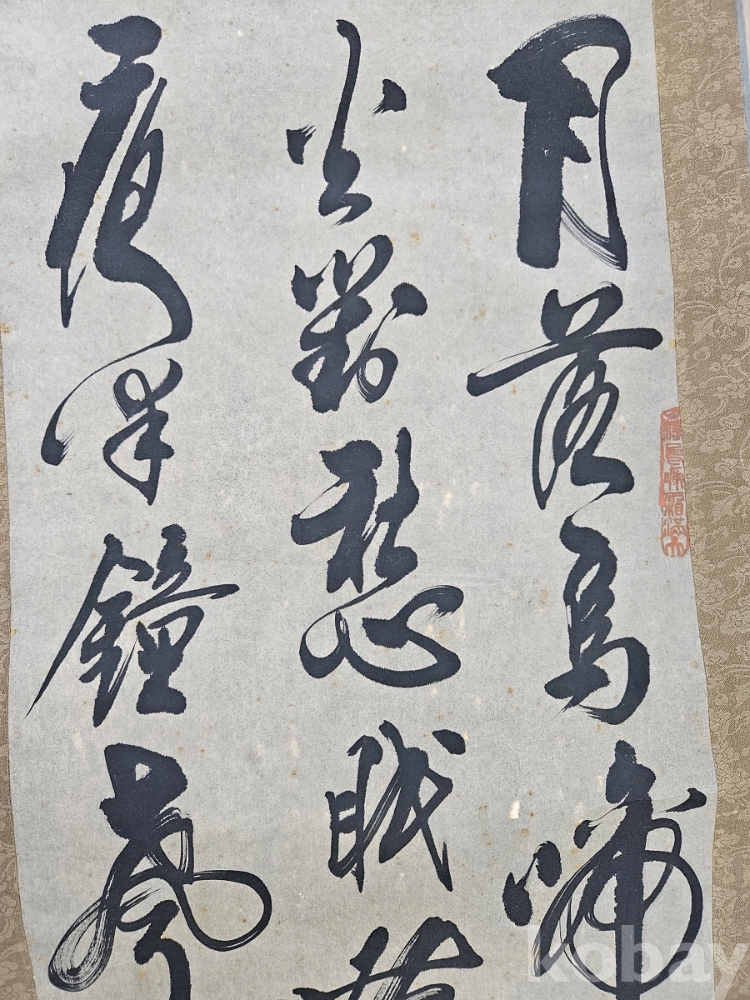 月落烏啼
火對愁眠
夜半鐘聲
kobay